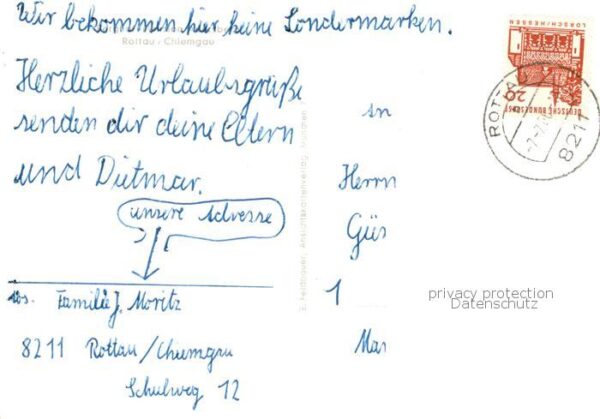 Wir bekommen hier keine Sondermarken.
Rottau / Chiemgau
Herzliche Urlaubsgrüße
senden dir deine Eltern
und Dietmar.
unsere Adresse
Abs. Familie J. Moritz
8211 Rottau/Chiemgau
Schulweg 12
E. Feldbauer, Ansichtskartenverlag, München
An
Herrn
Gü
1
Mar
privacy protection
Datenschutz
LORSCH/HESSEN
20
DEUTSCHE BUNDESPOST
ROTTAU
8211